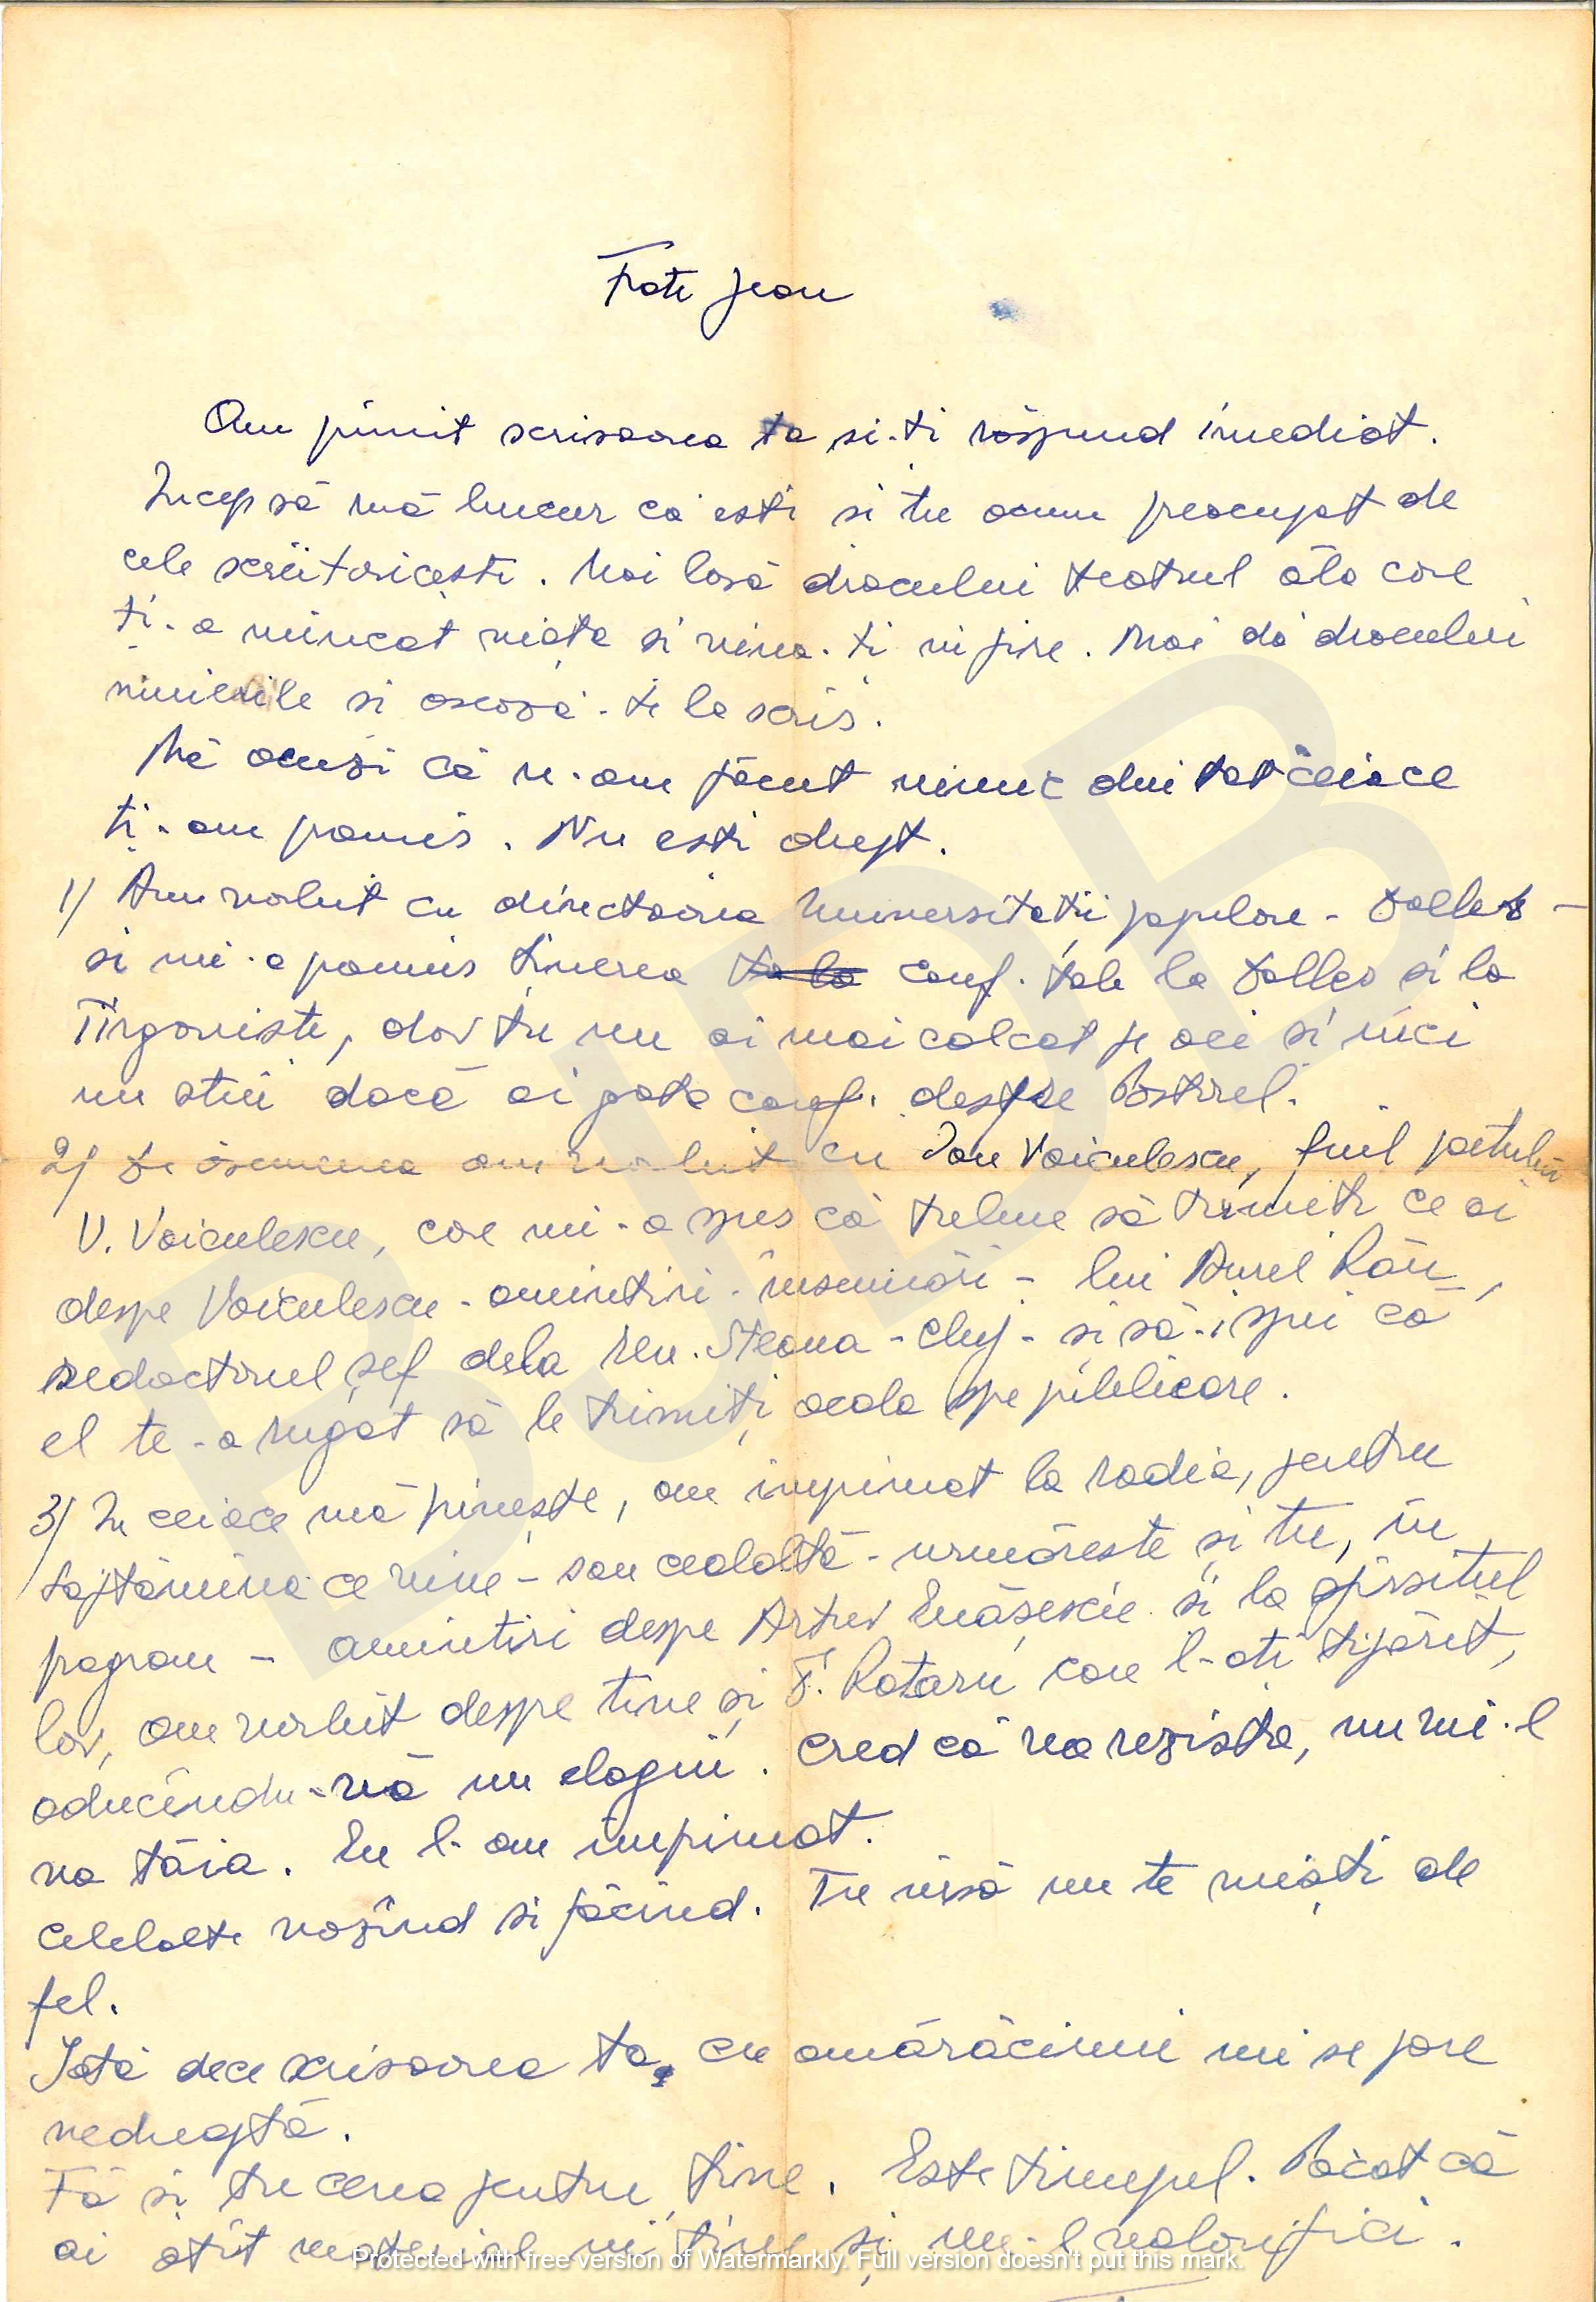 Frate Jean
Am primit scrisoarea ta si-ti răspund imediat.
Incep să mă bucur că esti si tu acum preocupat de
cele scriitoricesti. Mai lasă dracului teatrul ăla care
ti-a mîncat viata si vina-ti in fire. Mai dă dracului
si asează-te la scris.
Mă acuzi că n-am făcut nimic din tot ceiace
ti-am promis. Nu esti drept.
1) Am vorbit cu directoarea Universitatii populare - Dalles -
si mi-a promis tinerea conf. tale la Dalles si la
Tîrgoviste, dar tu nu ai mai calcat pe aci si nici
nu stiu dacă ai gata conf. despre Păstorel.
2) De asemenea am vorbit cu Ion Voiculescu, fiul poetului
V. Voiculescu, care mi-a spus că trebue să trimeti ce ai
despre Voiculescu - amintiri - însemnări - lui Aurel Rău,
redactorul șef dela rev. Steaua - Cluj - si să-i spui că
el te-a rugat să le trimiți acolo spre publicare.
3) In ceiace mă priveste, am imprimat la radio, pentru
săptămîna ce vine - sau cealaltă - urmăreste și tu, în
program - amintiri despre Artur Enășescu si la sfîrsitul
lor, am vorbit despre tine și F. Rotaru care l-ati tipărit,
aducîndu-vă un elogiu. Cred că va rezista, nu mi-l
va tăia. Eu l-am imprimat.
Celelalte văzînd si făcînd. Tu însă nu te miști de
fel.
Iată dece scrisoarea ta, cu amărăciuni mi se pare
nedreaptă.
Fă si tu ceva pentru tine. Este timpul. Păcat că
ai atît material in tine și nu-l valorifici.
Protected with free version of Watermarkly. Full version doesn't put this mark.
BJDB